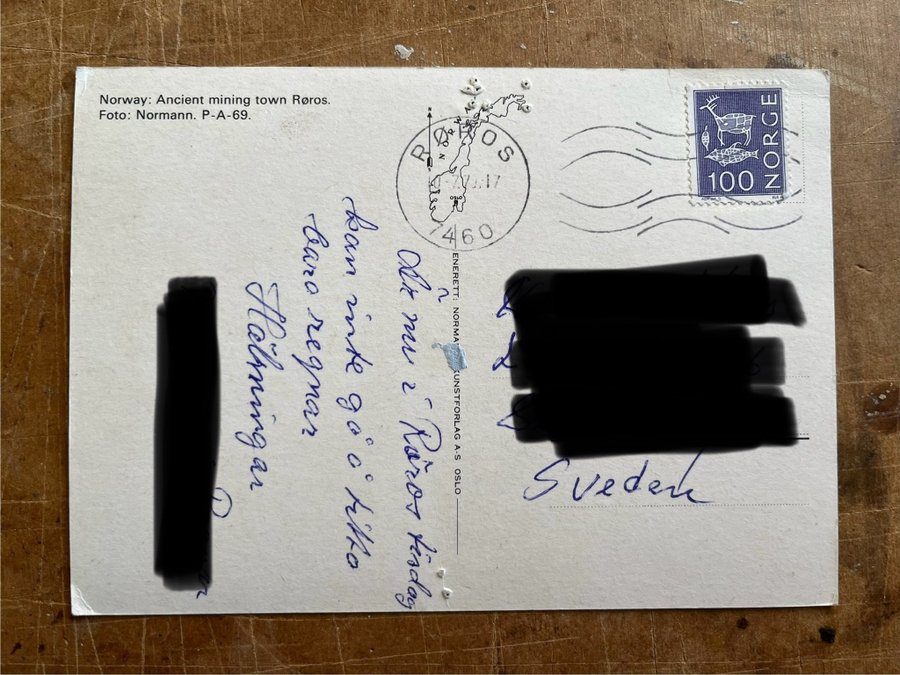 Norway: Ancient mining town Røros.
Foto: Normann. P-A-69.
RØROS
7460
NORGE
100
ENERETT: NORMA KUNSTFORLAG A-S OSLO
Är nu i Röros tisdag
kan inte gå ó titta
bara regnar
Hälsningar
Sveden